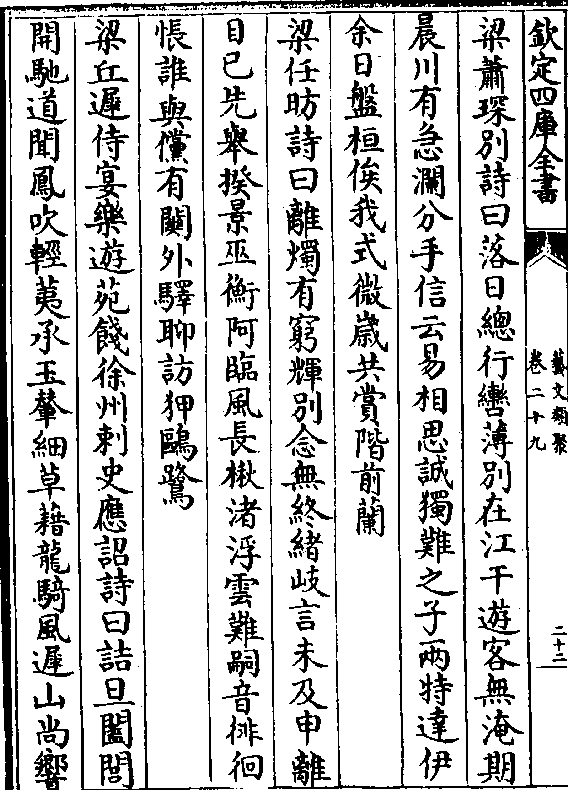 欽定四庫全書
藝文類聚
卷二十九
二十三
梁蕭琛別詩曰落日總行轡薄別在江干遊客無淹期
晨川有急瀾分手信云易相思誠獨難之子兩特達伊
余日盤桓俟我式微歳共賞階前蘭
梁任昉詩曰離燭有窮輝別念無終緒岐言未及申離
目已先舉揆景巫衡阿臨風長楸渚浮雲難嗣音徘徊
悵誰與儻有關外驛聊訪狎鷗鷺
梁丘遲侍宴樂遊苑餞徐州刺史應詔詩曰詰旦闔閭
開馳道聞鳳吹輕荑承玉輦細草藉龍騎風遲山尚響